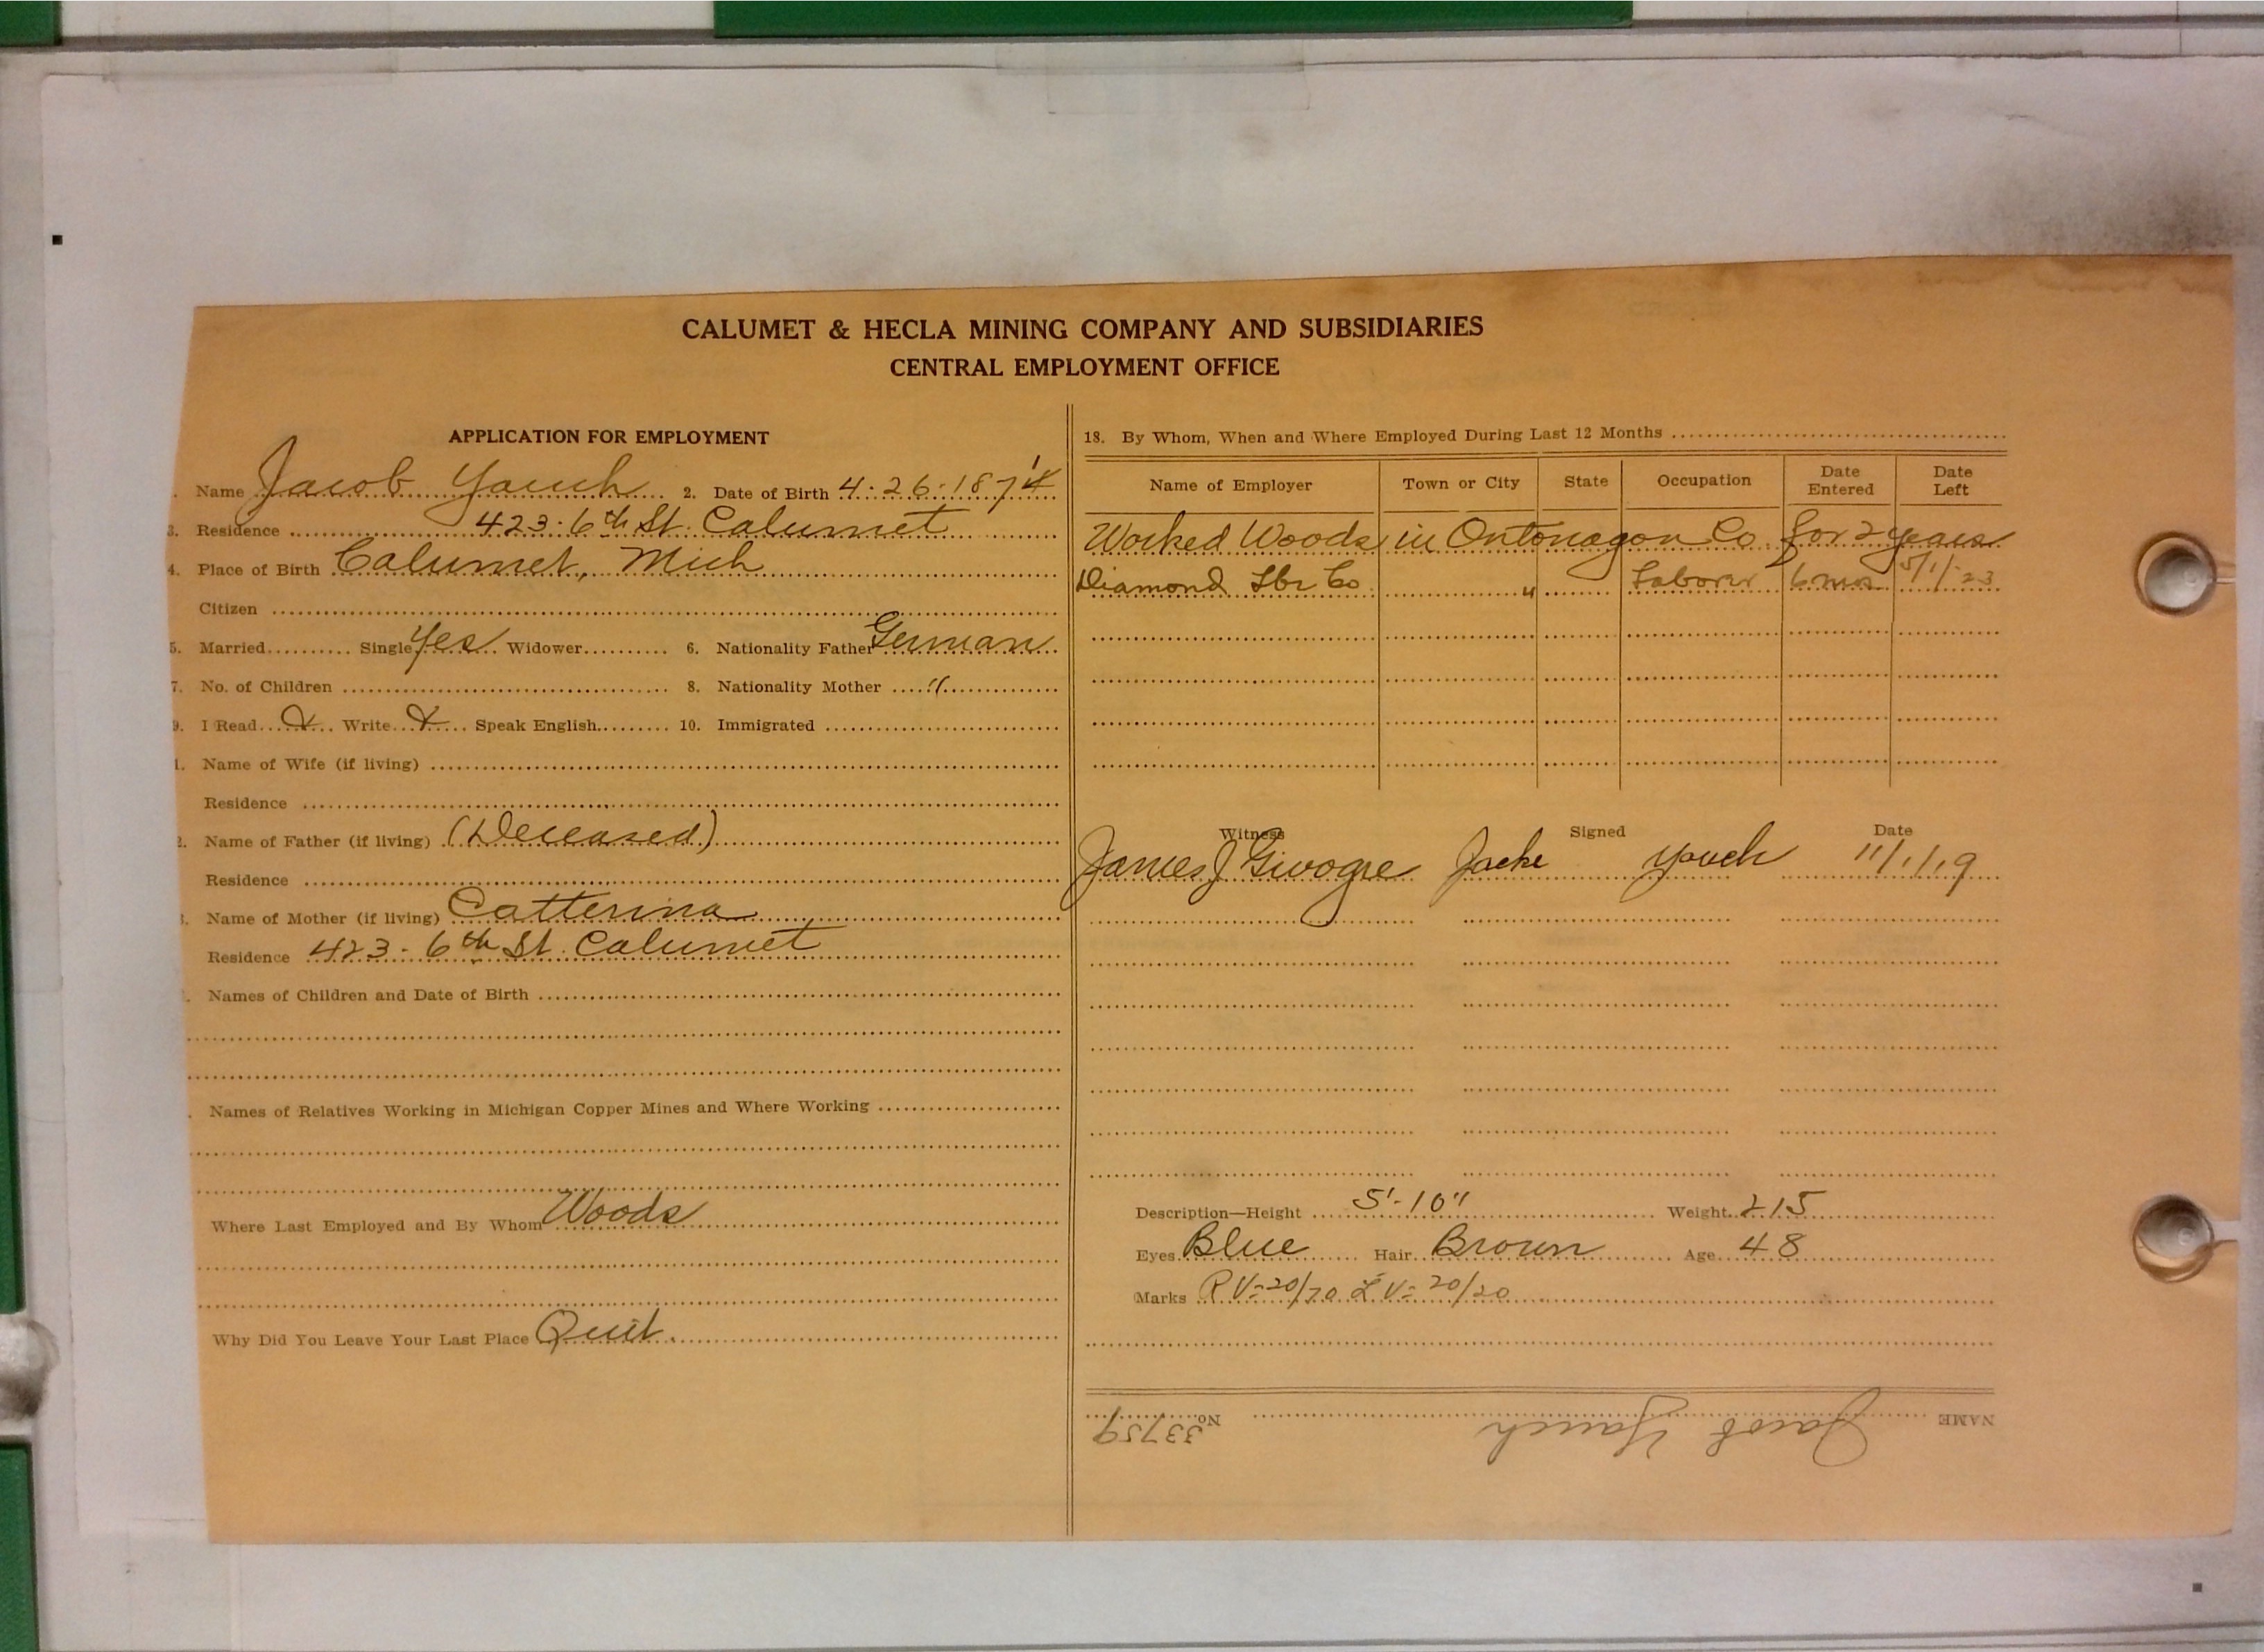 CALUMET & HECLA MINING COMPANY AND SUBSIDIARIES
CENTRAL EMPLOYMENT OFFICE
APPLICATION FOR EMPLOYMENT
. Name Jacob Yauch 2. Date of Birth 4-26-1874
3. Residence 423-6th St. Calumet
4. Place of Birth Calumet, Mich
Citizen
5. Married Single Yes Widower 6. Nationality Father German
7. No. of Children 8. Nationality Mother "
9. I Read X Write X Speak English 10. Immigrated
1. Name of Wife (if living)
Residence
2. Name of Father (if living) (Deceased)
Residence
3. Name of Mother (if living) Catterina
Residence 423-6th St. Calumet
. Names of Children and Date of Birth
. Names of Relatives Working in Michigan Copper Mines and Where Working
Where Last Employed and By Whom Woods
Why Did You Leave Your Last Place Quit.
18. By Whom, When and Where Employed During Last 12 Months
Name of Employer Town or City State Occupation Date Entered Date Left
Worked Woods in Ontonagon Co. for 2 years
Diamond Lbr Co. " Laborer 6 mos 5/1/-23
Witness Signed Date
James J Jacke Yauch 11/1/19
Description—Height 5'-10" Weight 215
Eyes Blue Hair Brown Age 48
Marks R V=20/20 L V=20/20
NAME Jacob Yauch No. 33759